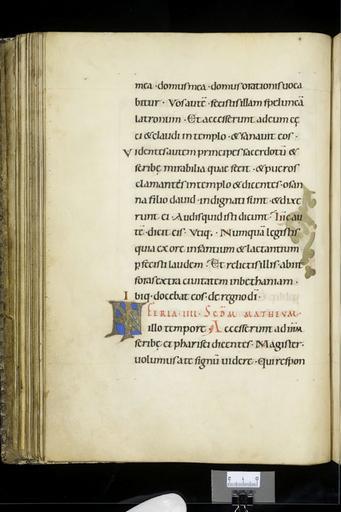 mea · domus mea · domus orationis uoca
bitur · Vos autē · fecistis illam speluncā
latronum · Et accesserunt ad eum cę
ci & claudi in templo · & sanauit eos ·
Videntes autem principes sacerdotū &
scribę mirabilia quae fecit · & pueros
clamantes in templo & dicentes · osan
na filio dauid · indignati sunt · & dixe
runt ei · Audis quid isti dicunt · Ihс̄ au
tē · dicit eis · Vtiq; · Numquā legistis
quia ex ore infantium & lactantium
pfecisti laudem · Et relictis illis · abiit
foras extra ciuitatem in bethaniam ·
Ibiq; docebat eos · de regno dī ·
FERIA · IIII · SECDM MATHEVM ·
IN illo tempore Accesserunt ad ihm̄
scribę et pharisei dicentes · Magister ·
uolumus a te signū uidere · Qui respon